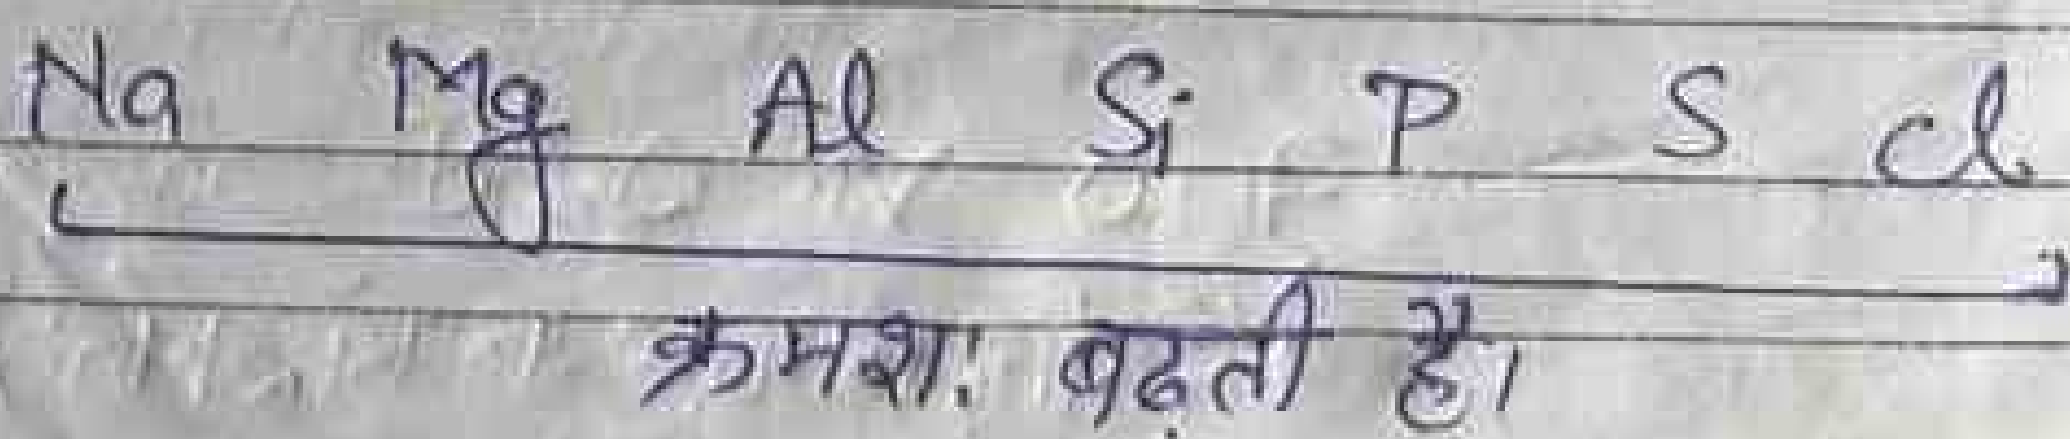 Na Mg Al Si P S Cl
क्रमशः बढ़ती है।